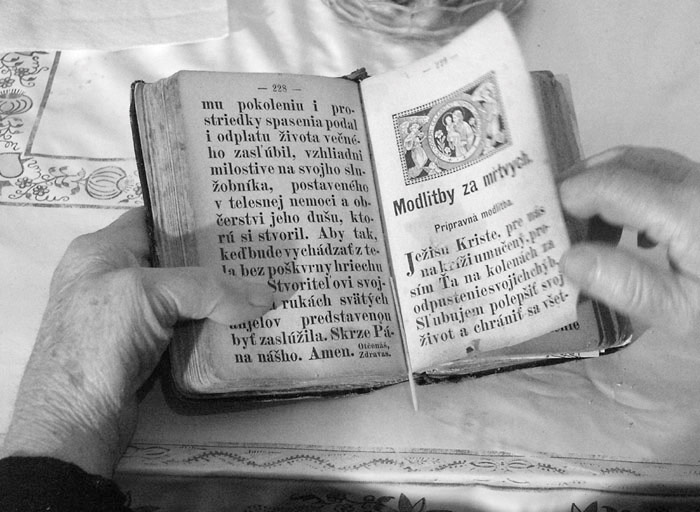 — 228 —
mu pokoleniu i pro-
striedky spasenia podal
i odplatu života večné-
ho zasľúbil, vzhliadni
milostive na svojho slu-
žobníka, postaveného
v telesnej nemoci a ob-
čerstvi jeho dušu, kto-
rú si stvoril. Aby tak,
keď bude vychádzať z te-
la bez poškvrny hriechu
Stvoriteľovi svoj-
rukách svätých
anjelov predstavenou
byť zaslúžila. Skrze Pá-
na nášho. Amen. Otčenáš,
Zdravas.
— 229 —
Modlitby za mŕtvych.
Prípravná modlitba.
Ježišu Kriste, pre nás
na kríži umučený, pro-
sím Ťa na kolenách za
odpustenie svojich chýb.
Sľubujem polepšiť svoj
život a chrániť sa všet-